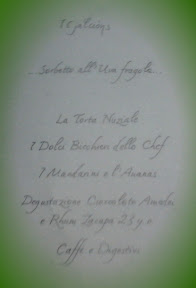 ...Sorbetto all'Uva fragola...
La Torta Nuziale
I Dolci Bicchieri dello Chef
I Mandarini e l'Ananas
Degustazione Cioccolato Amedei
e Rhum Zacapa 23 y.o
Caffè e Digestivi